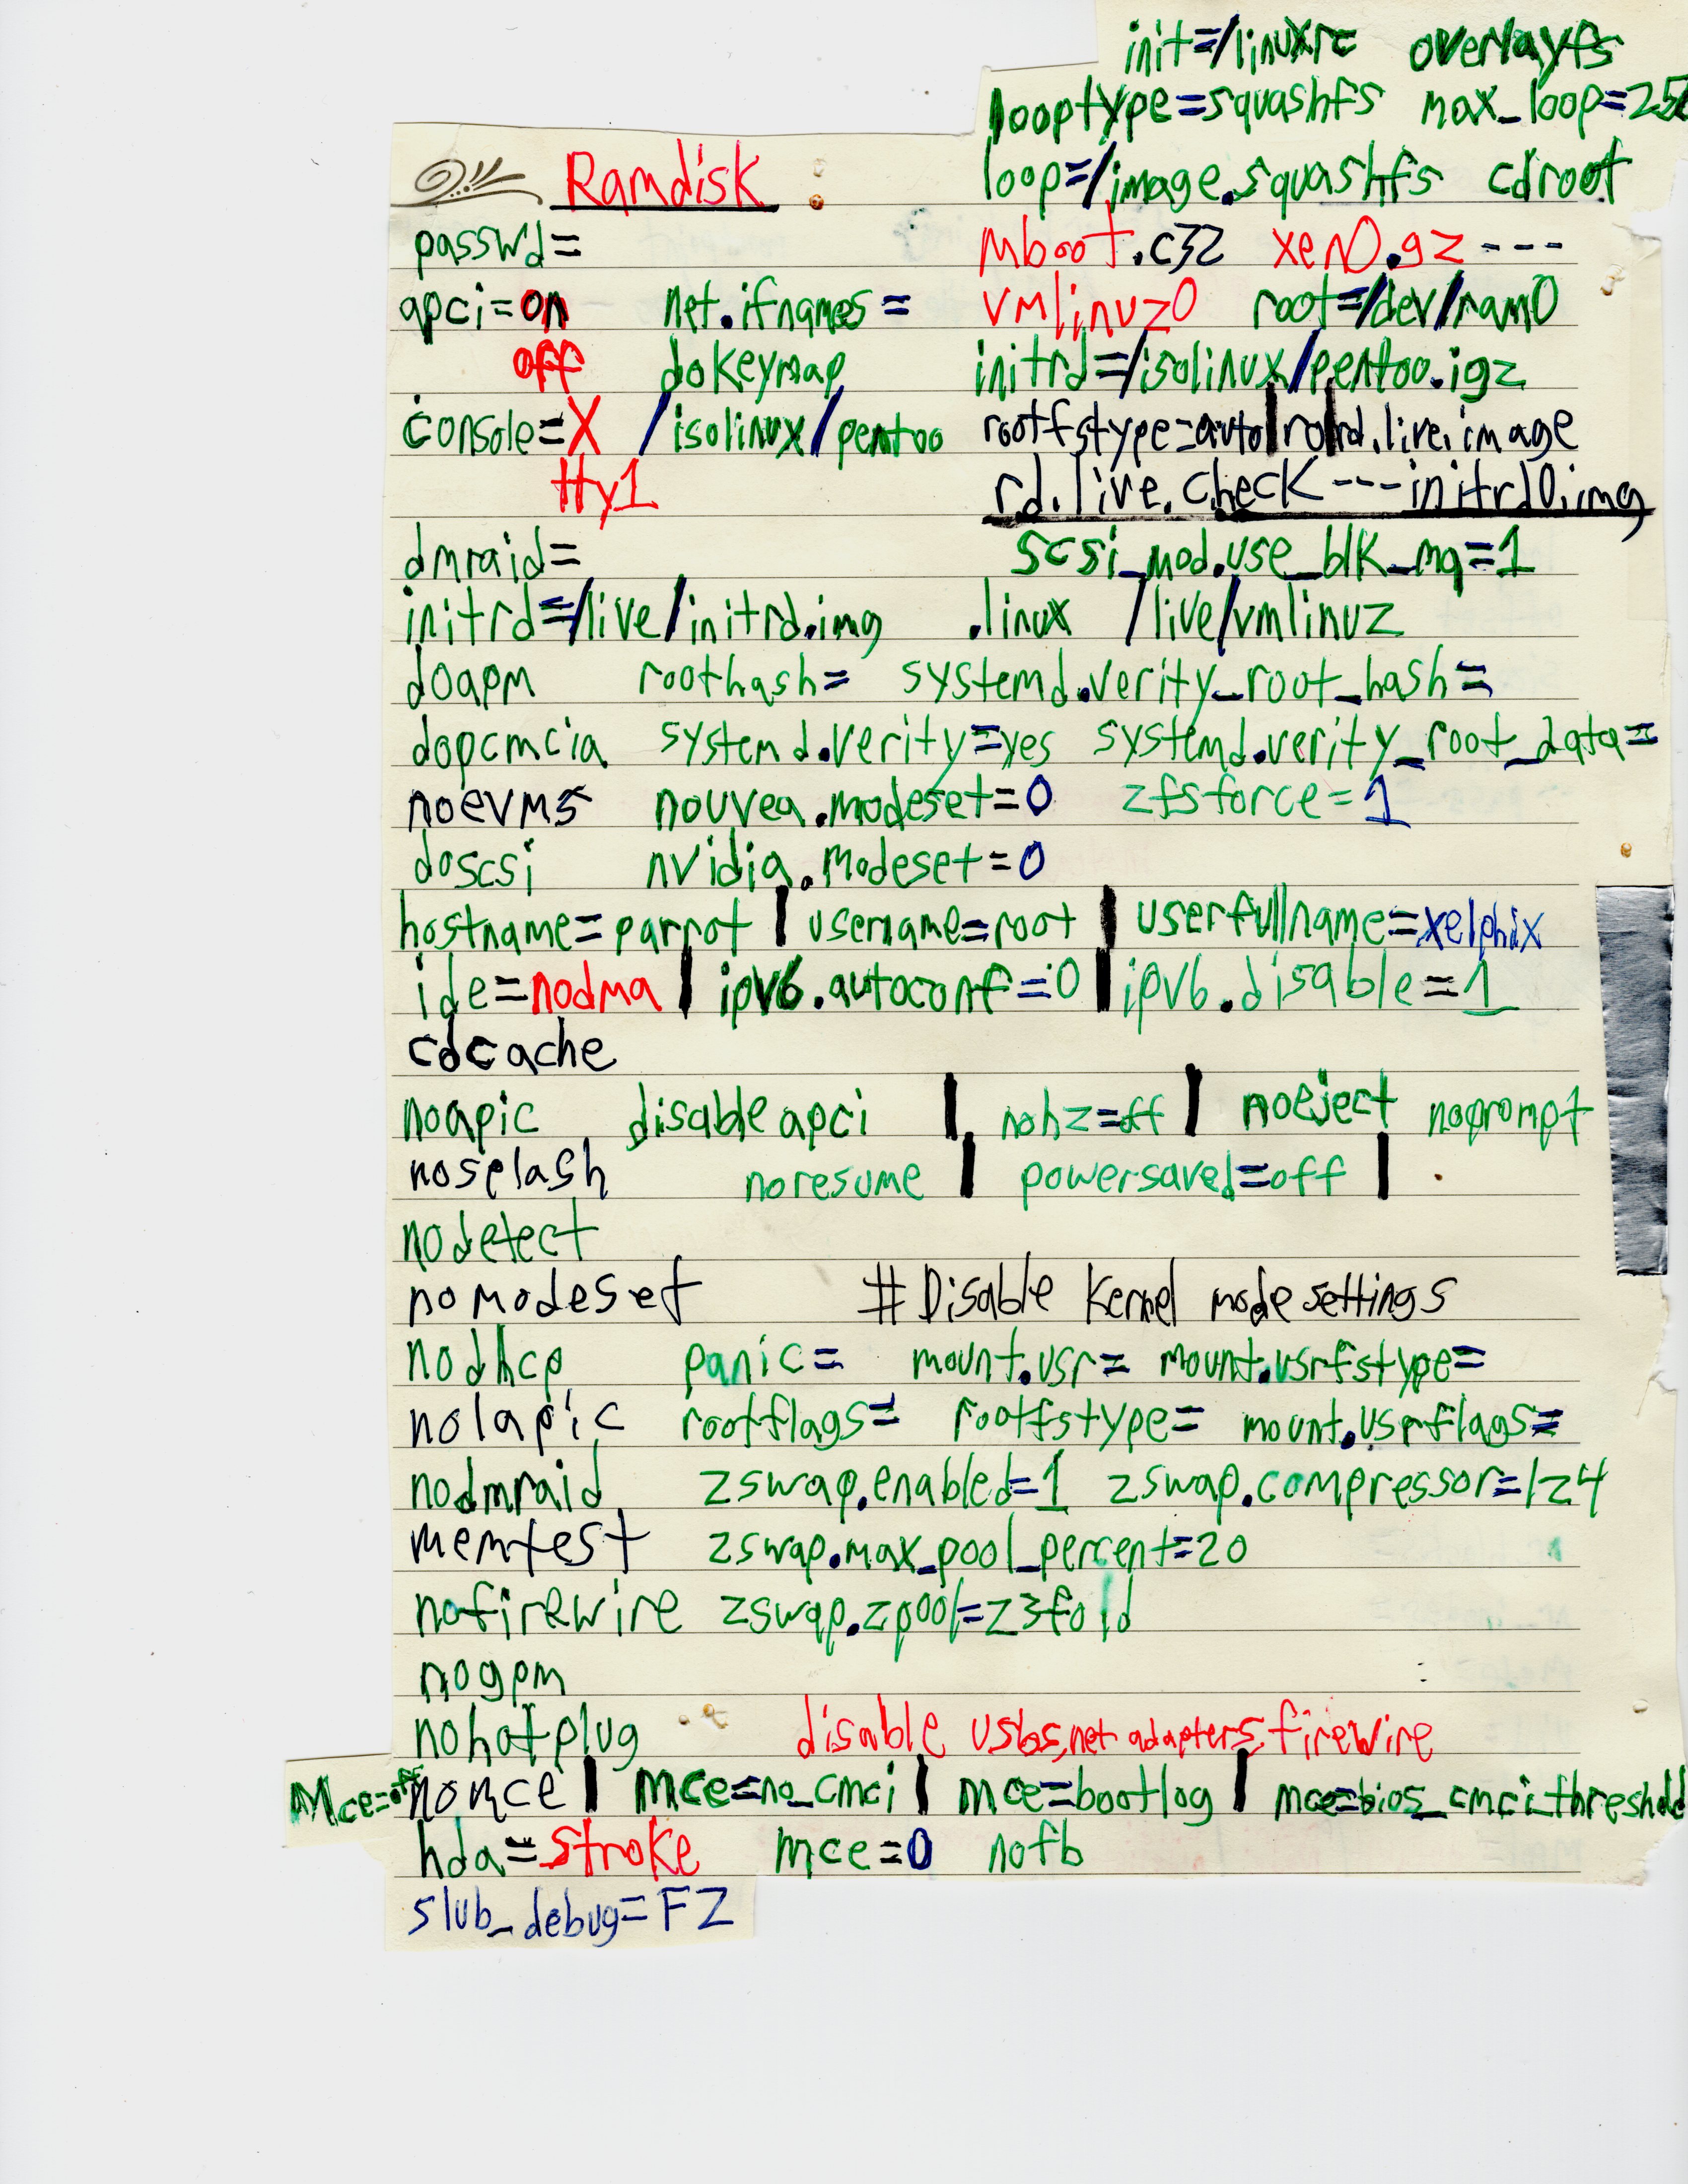 init=/linuxrc overlayfs
looptype=squashfs max_loop=256
Ramdisk : loop=/image.squashfs cdroot
passwd= mboot.c32 xen0.gz ---
apci=on net.ifnames= vmlinuz0 root=/dev/ram0
off dokeymap initrd=/isolinux/pentoo.igz
console=X /isolinux/pentoo rootfstype=auto|ro|rd.live.image
tty1 rd.live.check---initrd0.img
dmraid= scsi_mod.use_blk_mq=1
initrd=/live/initrd.img .linux /live/vmlinuz
doapm roothash= systemd.verity_root_hash=
dopcmcia systemd.verity=yes systemd.verity_root_data=
noevms nouvea.modeset=0 zfsforce=1
doscsi nvidia.modeset=0
hostname=parrot | username=root | userfullname=xelphix
ide=nodma | ipv6.autoconf=0 | ipv6.disable=1
cdcache
noapic disableapci | nohz=off | noeject noprompt
nosplash noresume | powersaved=off |
nodetect
nomodeset # Disable Kernel mode settings
nodhcp panic= mount.usr= mount.usrfstype=
nolapic rootflags= rootfstype= mount.usrflags=
nodmraid zswap.enabled=1 zswap.compressor=lz4
memtest zswap.max_pool_percent=20
nofirewire zswap.zpool=z3fold
nogpm
nohotplug disable usbs,net adapters,firewire
Mce=off nomce | mce=no_cmci | mce=bootlog | mce=bios_cmci_threshold
hda=stroke mce=0 nofb
slub_debug=FZ